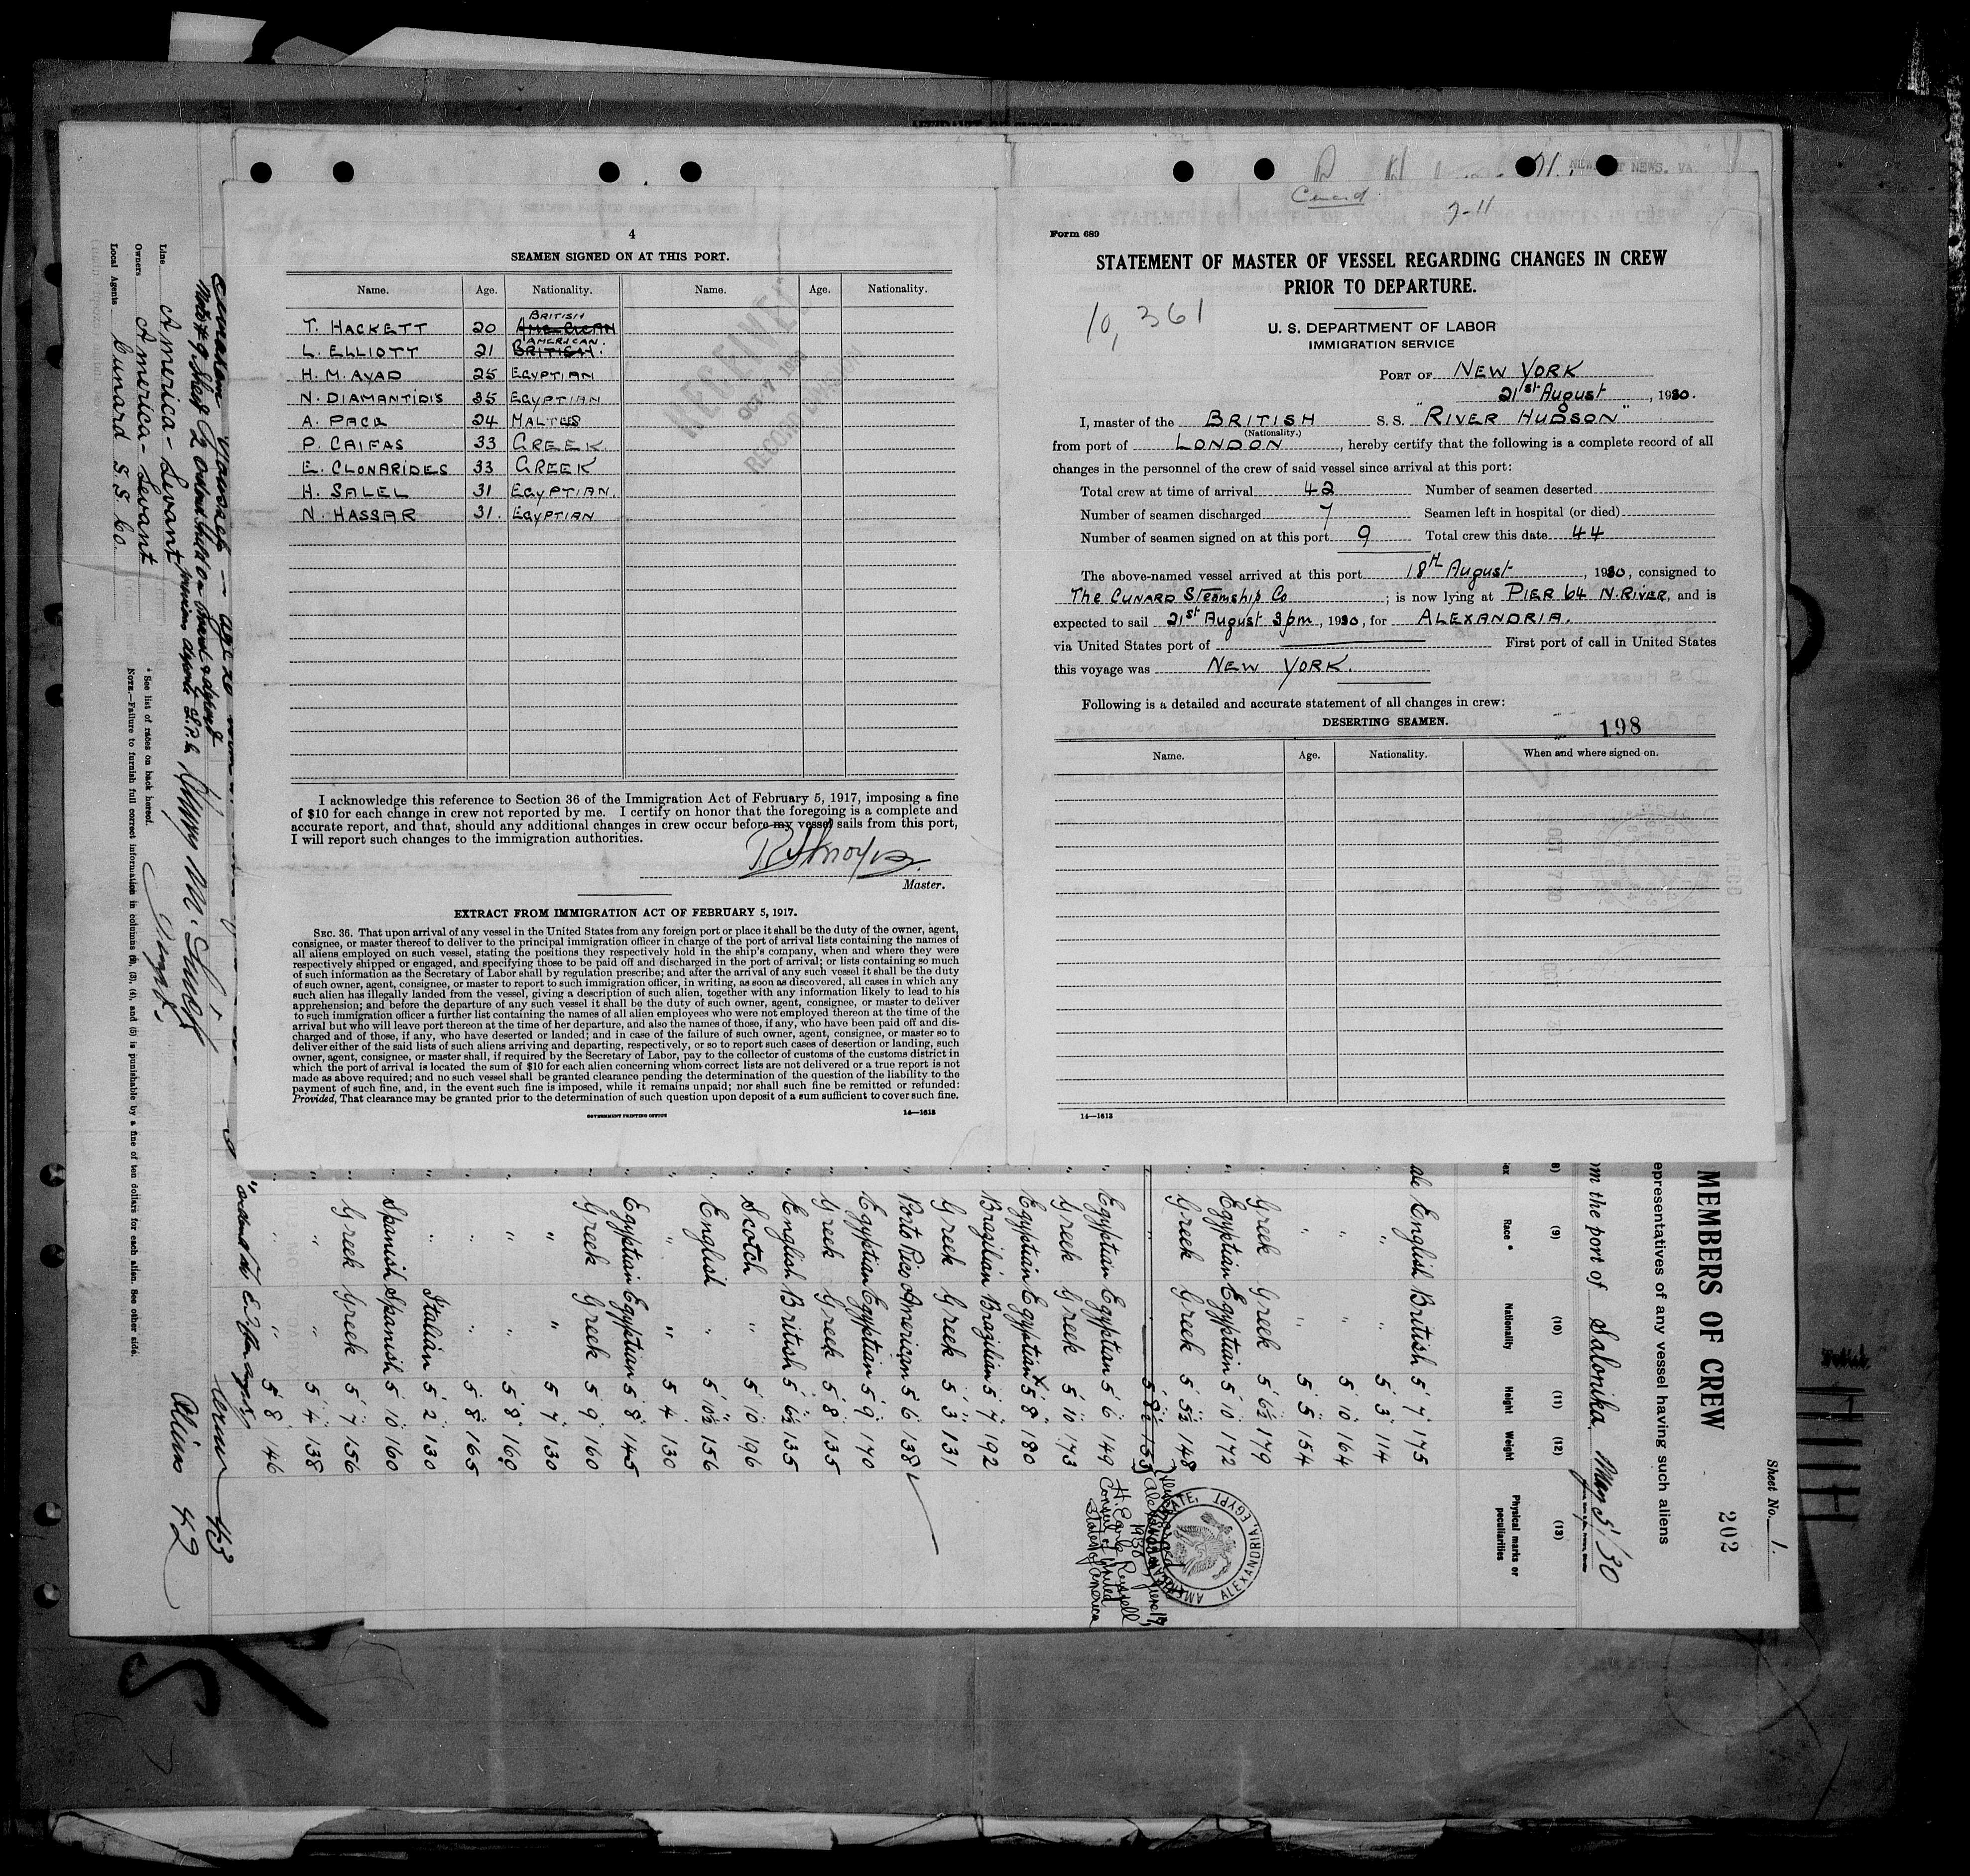 4
SEAMEN SIGNED ON AT THIS PORT.
Name. Age. Nationality. Name. Age. Nationality.
BRITISH
T. HACKETT 20 AMERICAN
AMERICAN.
L. ELLIOTT 21 BRITISH.
H. M. AYAD 25 EGYPTIAN
N. DIAMANTIDIS 35 EGYPTIAN
A. PACE 24 MALTESE
P. CAIFAS 33 GREEK
E. CLONARIDES 33 GREEK
H. SALEL 31 EGYPTIAN.
N. HASSAR 31. EGYPTIAN
RECEIVED
OCT 7 1930
RECORD DIVISION
I acknowledge this reference to Section 36 of the Immigration Act of February 5, 1917, imposing a fine
of $10 for each change in crew not reported by me. I certify on honor that the foregoing is a complete and
accurate report, and that, should any additional changes in crew occur before my vessel sails from this port,
I will report such changes to the immigration authorities.
Master.
EXTRACT FROM IMMIGRATION ACT OF FEBRUARY 5, 1917.
SEC. 36. That upon arrival of any vessel in the United States from any foreign port or place it shall be the duty of the owner, agent,
consignee, or master thereof to deliver to the principal immigration officer in charge of the port of arrival lists containing the names of
all aliens employed on such vessel, stating the positions they respectively hold in the ship's company, when and where they were
respectively shipped or engaged, and specifying those to be paid off and discharged in the port of arrival; or lists containing so much
of such information as the Secretary of Labor shall by regulation prescribe; and after the arrival of any such vessel it shall be the duty
of such owner, agent, consignee, or master to report to such immigration officer, in writing, as soon as discovered, all cases in which any
such alien has illegally landed from the vessel, giving a description of such alien, together with any information likely to lead to his
apprehension; and before the departure of any such vessel it shall be the duty of such owner, agent, consignee, or master to deliver
to such immigration officer a further list containing the names of all alien employees who were not employed thereon at the time of the
arrival but who will leave port thereon at the time of her departure, and also the names of those, if any, who have been paid off and dis-
charged and of those, if any, who have deserted or landed; and in case of the failure of such owner, agent, consignee, or master so to
deliver either of the said lists of such aliens arriving and departing, respectively, or so to report such cases of desertion or landing, such
owner, agent, consignee, or master shall, if required by the Secretary of Labor, pay to the collector of customs of the customs district in
which the port of arrival is located the sum of $10 for each alien concerning whom correct lists are not delivered or a true report is not
made as above required; and no such vessel shall be granted clearance pending the determination of the question of the liability to the
payment of such fine, and, in the event such fine is imposed, while it remains unpaid; nor shall such fine be remitted or refunded:
Provided, That clearance may be granted prior to the determination of such question upon deposit of a sum sufficient to cover such fine.
GOVERNMENT PRINTING OFFICE 14—1613
NEWPORT NEWS, VA.
Cunard
7-11
Form 689
STATEMENT OF MASTER OF VESSEL REGARDING CHANGES IN CREW
PRIOR TO DEPARTURE.
10,361
U. S. DEPARTMENT OF LABOR
IMMIGRATION SERVICE
PORT OF NEW YORK
21st August, 1930.
I, master of the BRITISH S. S. "RIVER HUDSON"
(Nationality.)
from port of LONDON, hereby certify that the following is a complete record of all
changes in the personnel of the crew of said vessel since arrival at this port:
Total crew at time of arrival 42 Number of seamen deserted
Number of seamen discharged 7 Seamen left in hospital (or died)
Number of seamen signed on at this port 9 Total crew this date 44
The above-named vessel arrived at this port 18th August, 1930, consigned to
The CUNARD Steamship Co; is now lying at PIER 64 N. RIVER, and is
expected to sail 21st August 3pm, 1930, for ALEXANDRIA.
via United States port of First port of call in United States
this voyage was NEW YORK.
Following is a detailed and accurate statement of all changes in crew:
DESERTING SEAMEN.
198
Name. Age. Nationality. When and where signed on.
14—1613
Sheet No. 1.
202
MEMBERS OF CREW
epresentatives of any vessel having such aliens
om the port of Salonika May 5/30
(9) (10) (11) (12) (13)
Race * Nationality Height Weight Physical marks or peculiarities
ale English British 5' 7" 175
" " 5' 3" 114
" " 5' 10" 164
" " 5' 5" 154
Greek Greek 5' 6½" 179
Egyptian Egyptian 5' 10" 172
Greek Greek 5' 5½" 148
Egyptian Egyptian 5' 6" 149
Greek Greek 5' 10" 173
Egyptian Egyptian 5' 8" 180
Brazilian Brazilian 5' 7" 192
Greek Greek 5' 3" 131
Porto Rico American 5' 6" 138
Egyptian Egyptian 5' 9" 170
Greek Greek 5' 8" 135
English British 5' 6½" 135
Scotch " 5' 10" 196
English " 5' 10½" 156
" " 5' 4" 130
Egyptian Egyptian 5' 8" 145
Greek Greek 5' 9" 160
" " 5' 7" 130
" " 5' 8" 160
" " 5' 8" 165
" Italian 5' 2" 130
Spanish Spanish 5' 10" 160
Greek Greek 5' 7" 156
" " 5' 4" 138
" " 5' 8" 146
AMERICAN CONSULATE, ALEXANDRIA, EGYPT
1930
H. Earle Russell
Consul of United
States of America
43
Aliens 42
Line America-Levant
Owners America-Levant
Local Agents Cunard S.S. Co.
* See list of races on back hereof.
NOTE.—Failure to furnish full correct information in columns (2), (3), (4), and (5) is punishable by a fine of ten dollars for each alien. See other side.